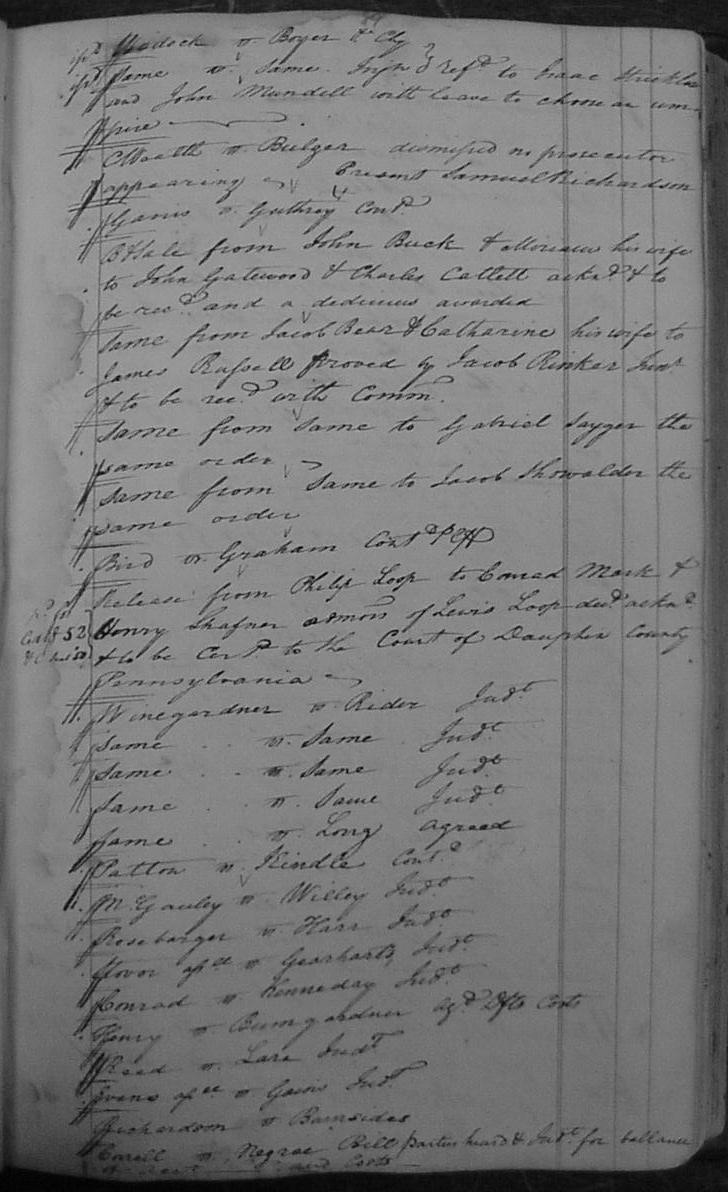 ipd Hudock vs. Boyer &c Clg
ipd Same vs. Same. Injn & refd to Isaac Strickler
and John Mundell with leave to choose an um-
pire
CWealth vs Bulger dismissed no prosecutor
appearing Present Samuel Richardson
Ganis vs Guthrey Contd
B&Sale from John Buck & his wife
to John Gatewood & Charles Catlett acknd & to
be recd and a dedimus awarded
Same from Jacob Bear & Catharine his wife to
James Russell proved by Jacob Rinker Junr
& to be recd with Commn.
Same from Same to Gabriel Sayger the
same order
Same from Same to Jacob Showalder the
same order
Bird vs Graham Contd
Release from Philip Loop to Conrad Mark &
Henry Shafner admors of Lewis Loop decd acknd
& to be Certd to the Court of Dauphin County
Pennsylvania
Winegardner vs Rider Judt
Same vs. Same Judt
Same vs. Same Judt
Same vs. Same Judt
Same vs. Long agreed
Patton vs. Kindle Contd
McGauley vs Willey Judt
Rosebarger vs Harr Judt
Hovor assee vs Gearharts, Judt
Conrad vs Kenneday Judt
Henry vs Bumgardner agd Dfts Costs
Reed vs Lara Judt
Evans assee vs Gavis Judt
Richardson vs Burnsides
Correll vs. Negroe Bill parties heard & Judt for ballance
and Costs